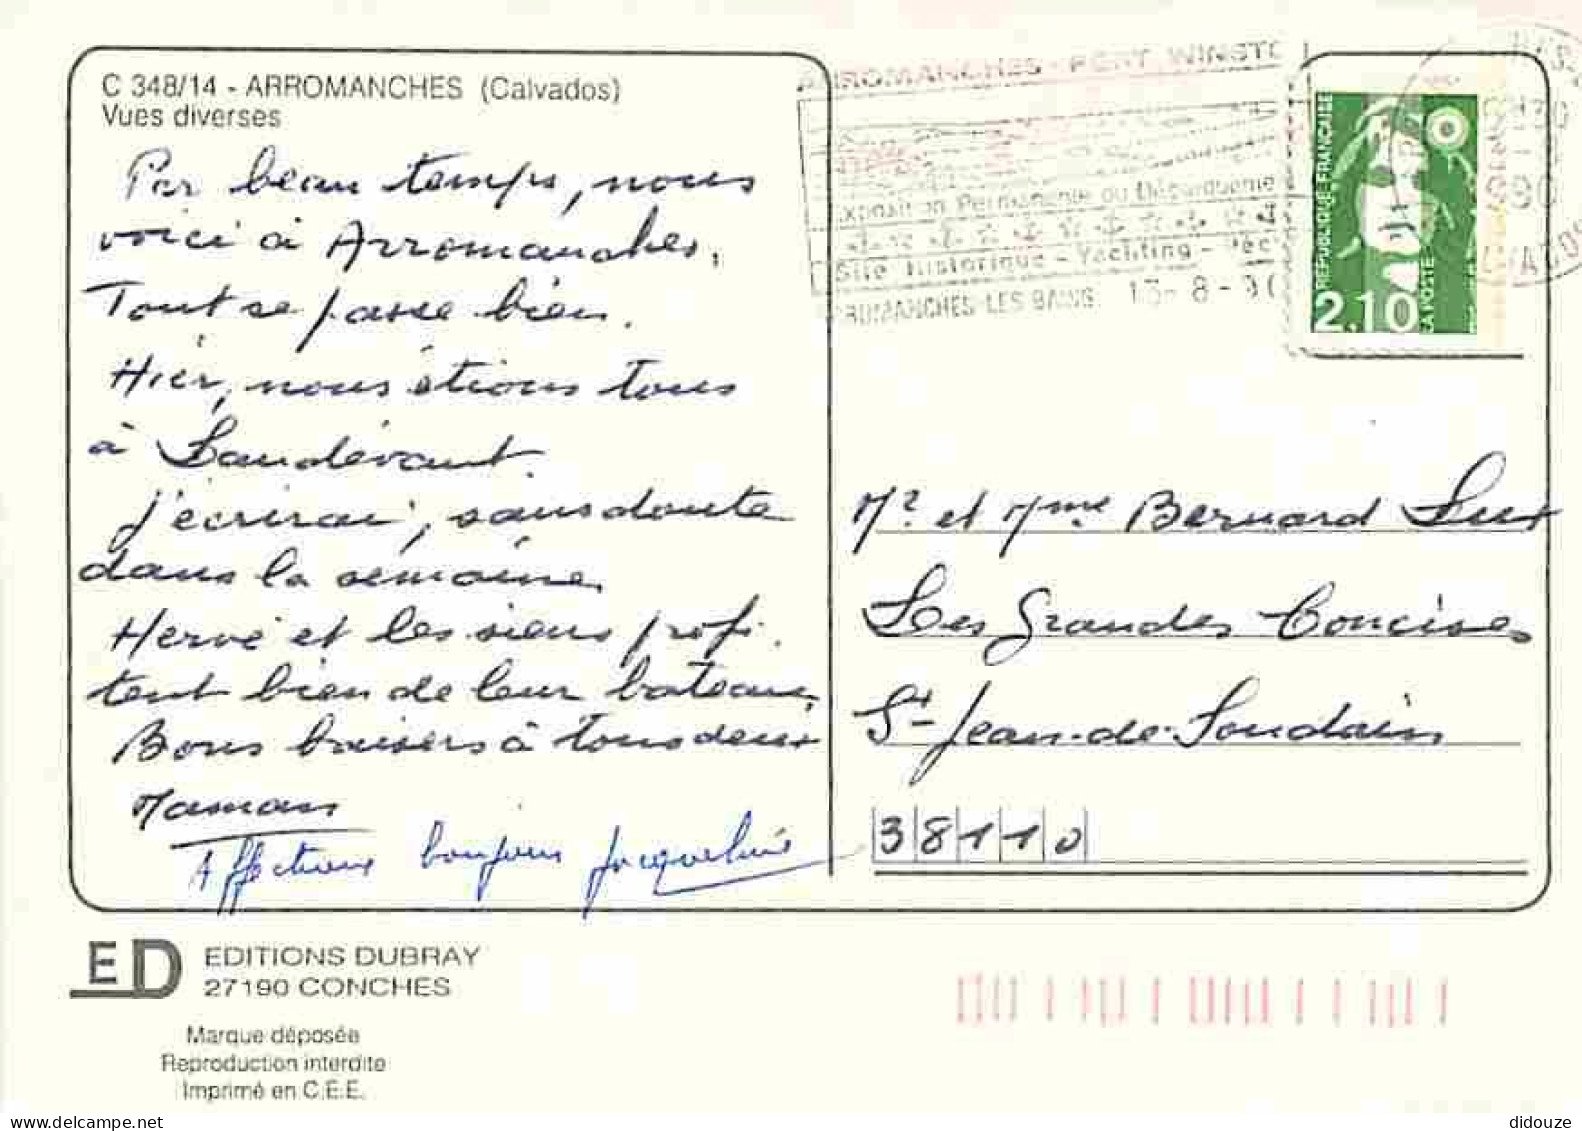 C 348/14 - ARROMANCHES (Calvados)
Vues diverses
Par beau temps, nous
voici à Arromanches.
Tout se passe bien.
Hier, nous étions tous
à Landévant.
J'écrirai, sans doute
dans la semaine
Hervé et les siens profi-
tent bien de leur bateau.
Bons baisers à tous deux
Maman
Affectueux bonjour Jacqueline
ARROMANCHES - PORT WINSTO
Exposition Permanente du Débarqueme
Site Historique - Yachting - Pêc
ARROMANCHES-LES BAINS 13-8-90
REPUBLIQUE FRANÇAISE
LA POSTE
2,10
Mr et Mme Bernard
Les Grandes
St-Jean-de-Soudain
38110
ED
EDITIONS DUBRAY
27190 CONCHES
Marque déposée
Reproduction interdite
Imprimé en C.E.E.
didouze